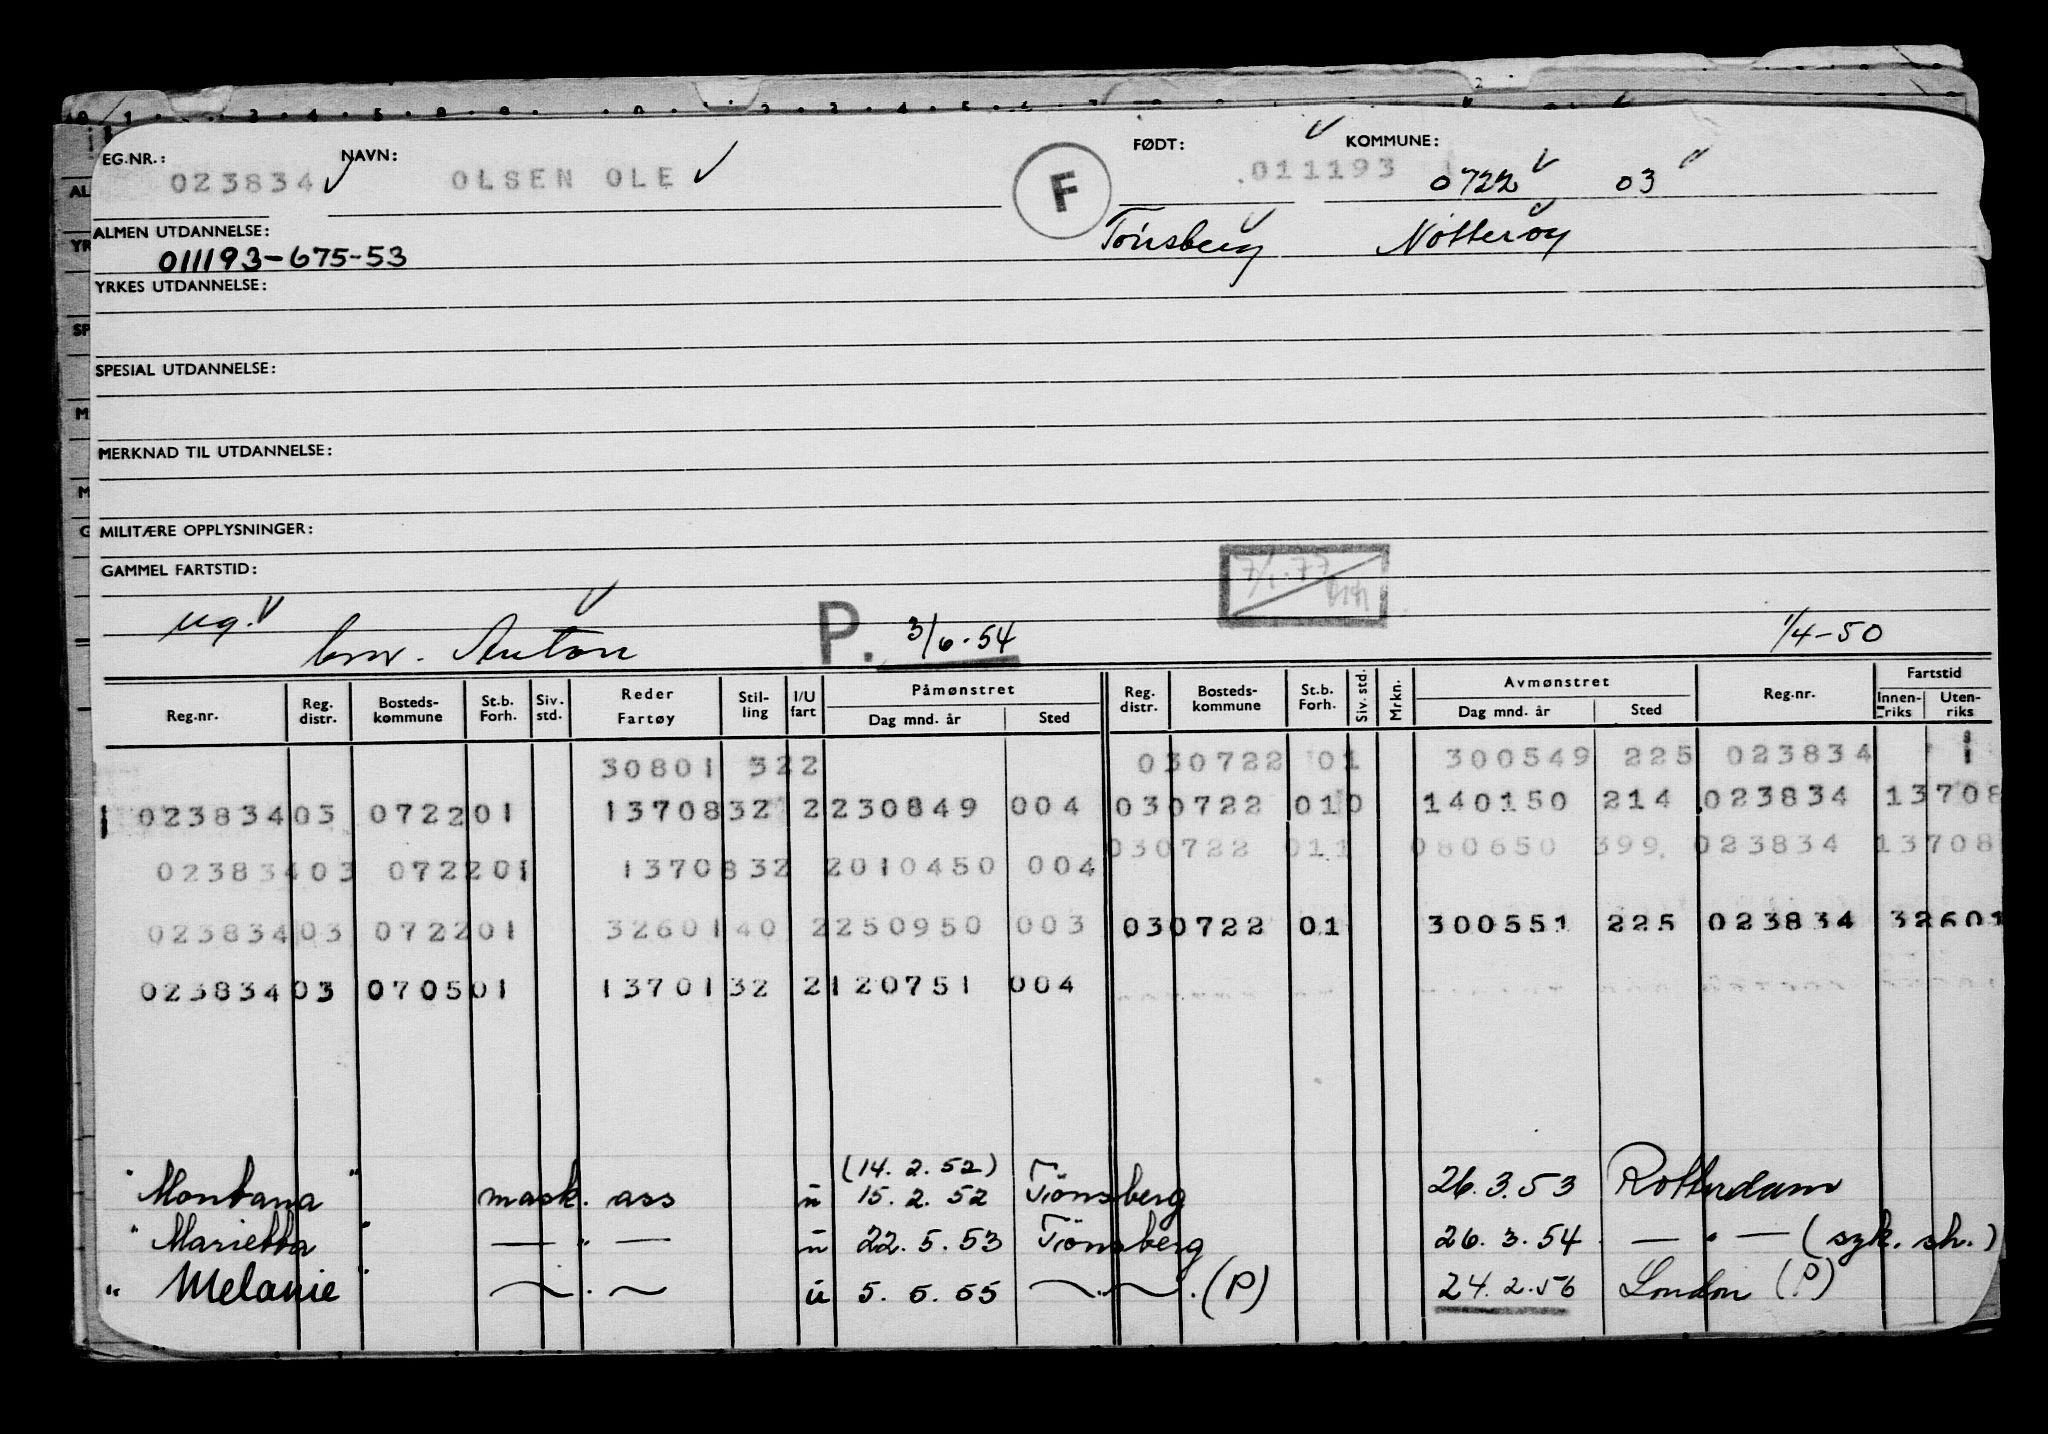 REG.NR.: NAVN: FØDT: KOMMUNE:
023834 OLSEN OLE F 011193 0722 03
ALMEN UTDANNELSE: Tönsberg Nötteröy
011193-675-53
YRKES UTDANNELSE:
SPESIAL UTDANNELSE:
MERKNAD TIL UTDANNELSE:
MILITÆRE OPPLYSNINGER:
GAMMEL FARTSTID: 7/1.77
ug. Anton P. 3/6-54 1/4-50
Reg.nr. Reg. distr. Bosteds-kommune St.b. Forh. Siv. std. Reder Fartøy Stil-ling I/U fart Påmønstret Dag mnd. år Sted Reg. distr. Bosteds-kommune St.b. Forh. Siv. std. Mrkn. Avmønstret Dag mnd. år Sted Reg.nr. Fartstid Innen-riks Uten-riks
30801 322 030722 01 300549 225 023834 1
02383403 072201 1370832 2230849 004 030722 010 140150 214 023834 13708
02383403 072201 1370832 2010450 004 030722 011 080650 399 023834 13708
02383403 072201 3260140 2250950 003 030722 01 300551 225 023834 32601
02383403 070501 1370132 2120751 004
(14.2.52)
"Montana" mask. ass u 15.2.52 Tönsberg 26.3.53 Rotterdam
"Marietta" — " — u 22.5.53 Tönsberg 26.3.54 — " — (syk. sh.)
"Melanie" — . — u 5.5.55 — . — . (P) 24.2.56 London (P)